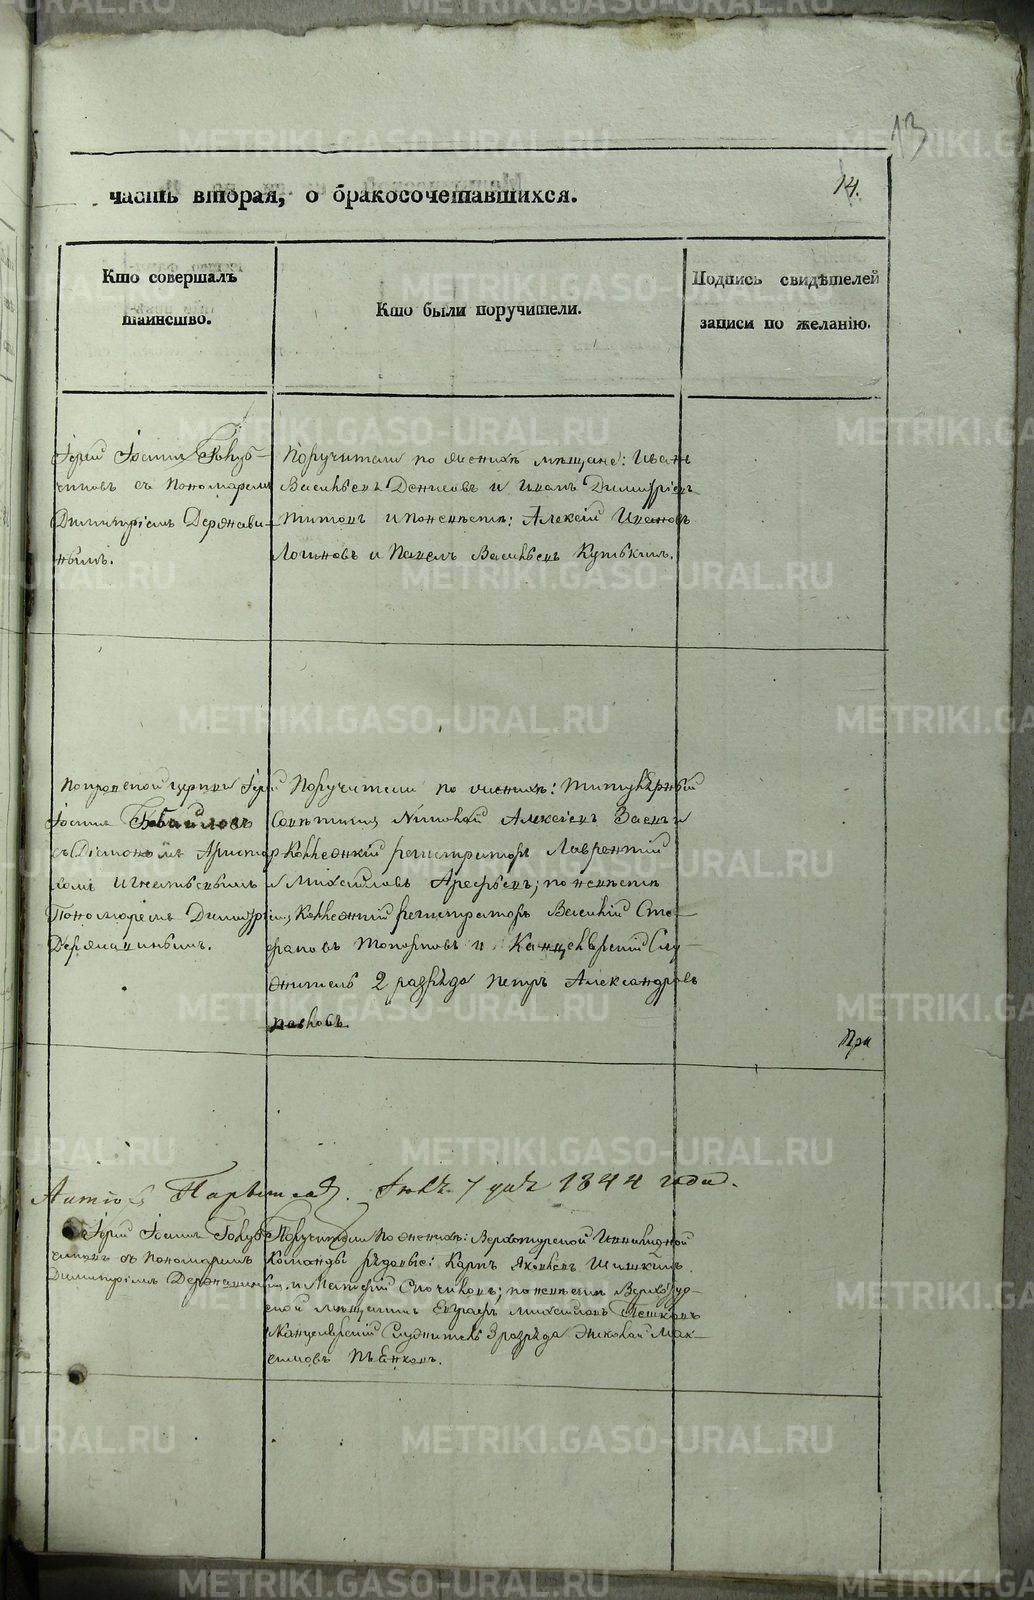 13
часть вторая, о бракосочетавшихся.
14.
Кто совершалъ
таинство.
Кто были поручители.
Подпись свидѣтелей
записи по желанію.
Іерей Іоаннъ Голуб-
чиковъ съ Пономаремъ
Димитріемъ Держави-
нымъ.
Поручители по женихѣ мѣщане: Иванъ
Васильевъ Денисовъ и Иванъ Димитріевъ
Титовъ и по невѣстѣ: Алексій Ивановъ
Логиновъ и Павелъ Васильевъ Кутькинъ.
церкви Іерей
Іоаннъ
съ Діакономъ Аристар
хомъ Игнатьевымъ и
Пономаремъ Димитріемъ
Державинымъ.
Поручители по женихѣ: Титулярный
Совѣтникъ Николай Алексіевъ
Коллежскій регистраторъ Лаврентій
Михайловъ Арефьевъ; по невѣстѣ
Коллежскій регистраторъ Василій Сте-
фановъ Топорковъ и Канцелярскій Слу-
житель 2 разряда Петръ Александровъ
При
7 дня 1844 года.
Іерей Іоаннъ Голуб-
чиковъ съ Пономаремъ
Димитріемъ Державинымъ.
Поручители по женихѣ: Верхотурской Инвалидной
Команды рядовые: Карпъ Яковлевъ Шишкинъ
и Матвей; по невѣстѣ Верхотур-
ской мѣщанинъ Евграфъ Михайловъ
Канцелярскій Служитель 3 разряда Николай Мак-
симовъ Пѣнковъ.
METRIKI.GASO-URAL.RU